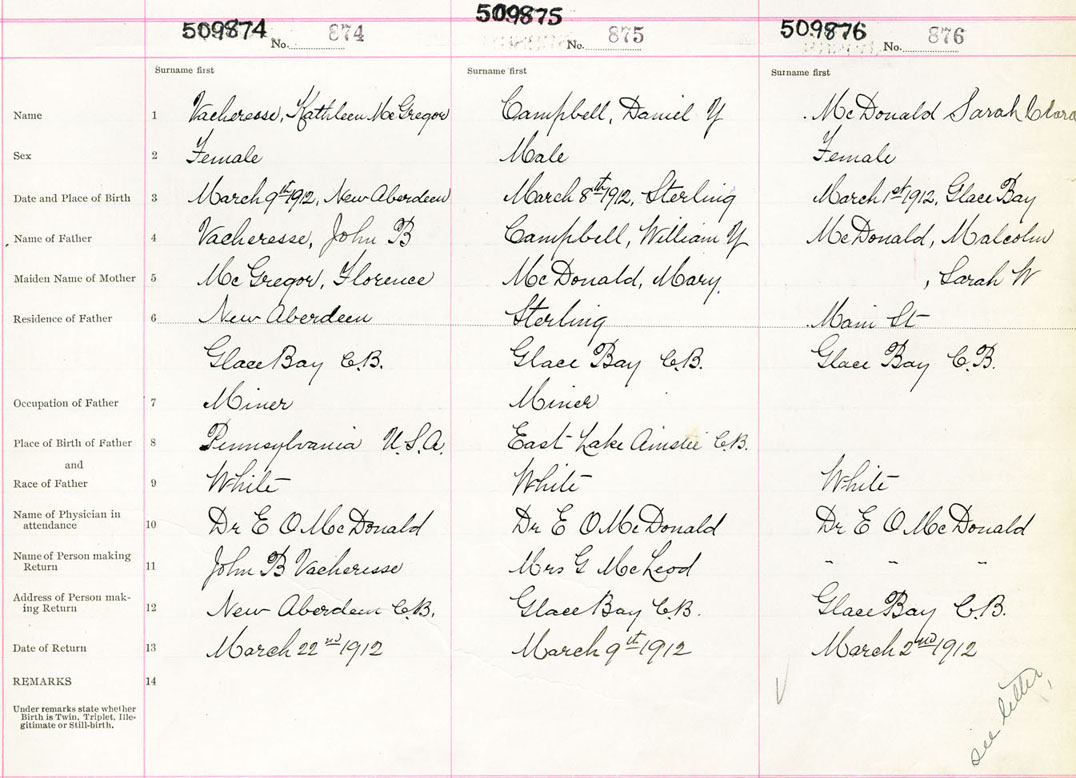 509874 509875 509876
No. 874 No. 875 No. 876
Surname first Surname first Surname first
Name 1 Vacheresse, Kathleen McGregor Campbell, Daniel Y McDonald Sarah Clara
Sex 2 Female Male Female
Date and Place of Birth 3 March 9th 1912, New Aberdeen March 8th 1912, Sterling March 1st 1912, Glace Bay
Name of Father 4 Vacheresse, John B Campbell, William Y McDonald, Malcolm
Maiden Name of Mother 5 McGregor, Florence McDonald, Mary , Sarah W
Residence of Father 6 New Aberdeen Sterling Main St
Glace Bay C.B. Glace Bay C.B. Glace Bay C.B.
Occupation of Father 7 Miner Miner
Place of Birth of Father 8 Pennsylvania U.S.A. East Lake Ainslie C.B.
and
Race of Father 9 White White White
Name of Physician in
attendance 10 Dr E O McDonald Dr E O McDonald Dr E O McDonald
Name of Person making
Return 11 John B Vacheresse Mrs G McLeod " " "
Address of Person mak-
ing Return 12 New Aberdeen C.B. Glace Bay C.B. Glace Bay C.B.
Date of Return 13 March 22nd 1912 March 9th 1912 March 2nd 1912
REMARKS 14
Under remarks state whether
Birth is Twin, Triplet, Ille-
gitimate or Still-birth.
see letter